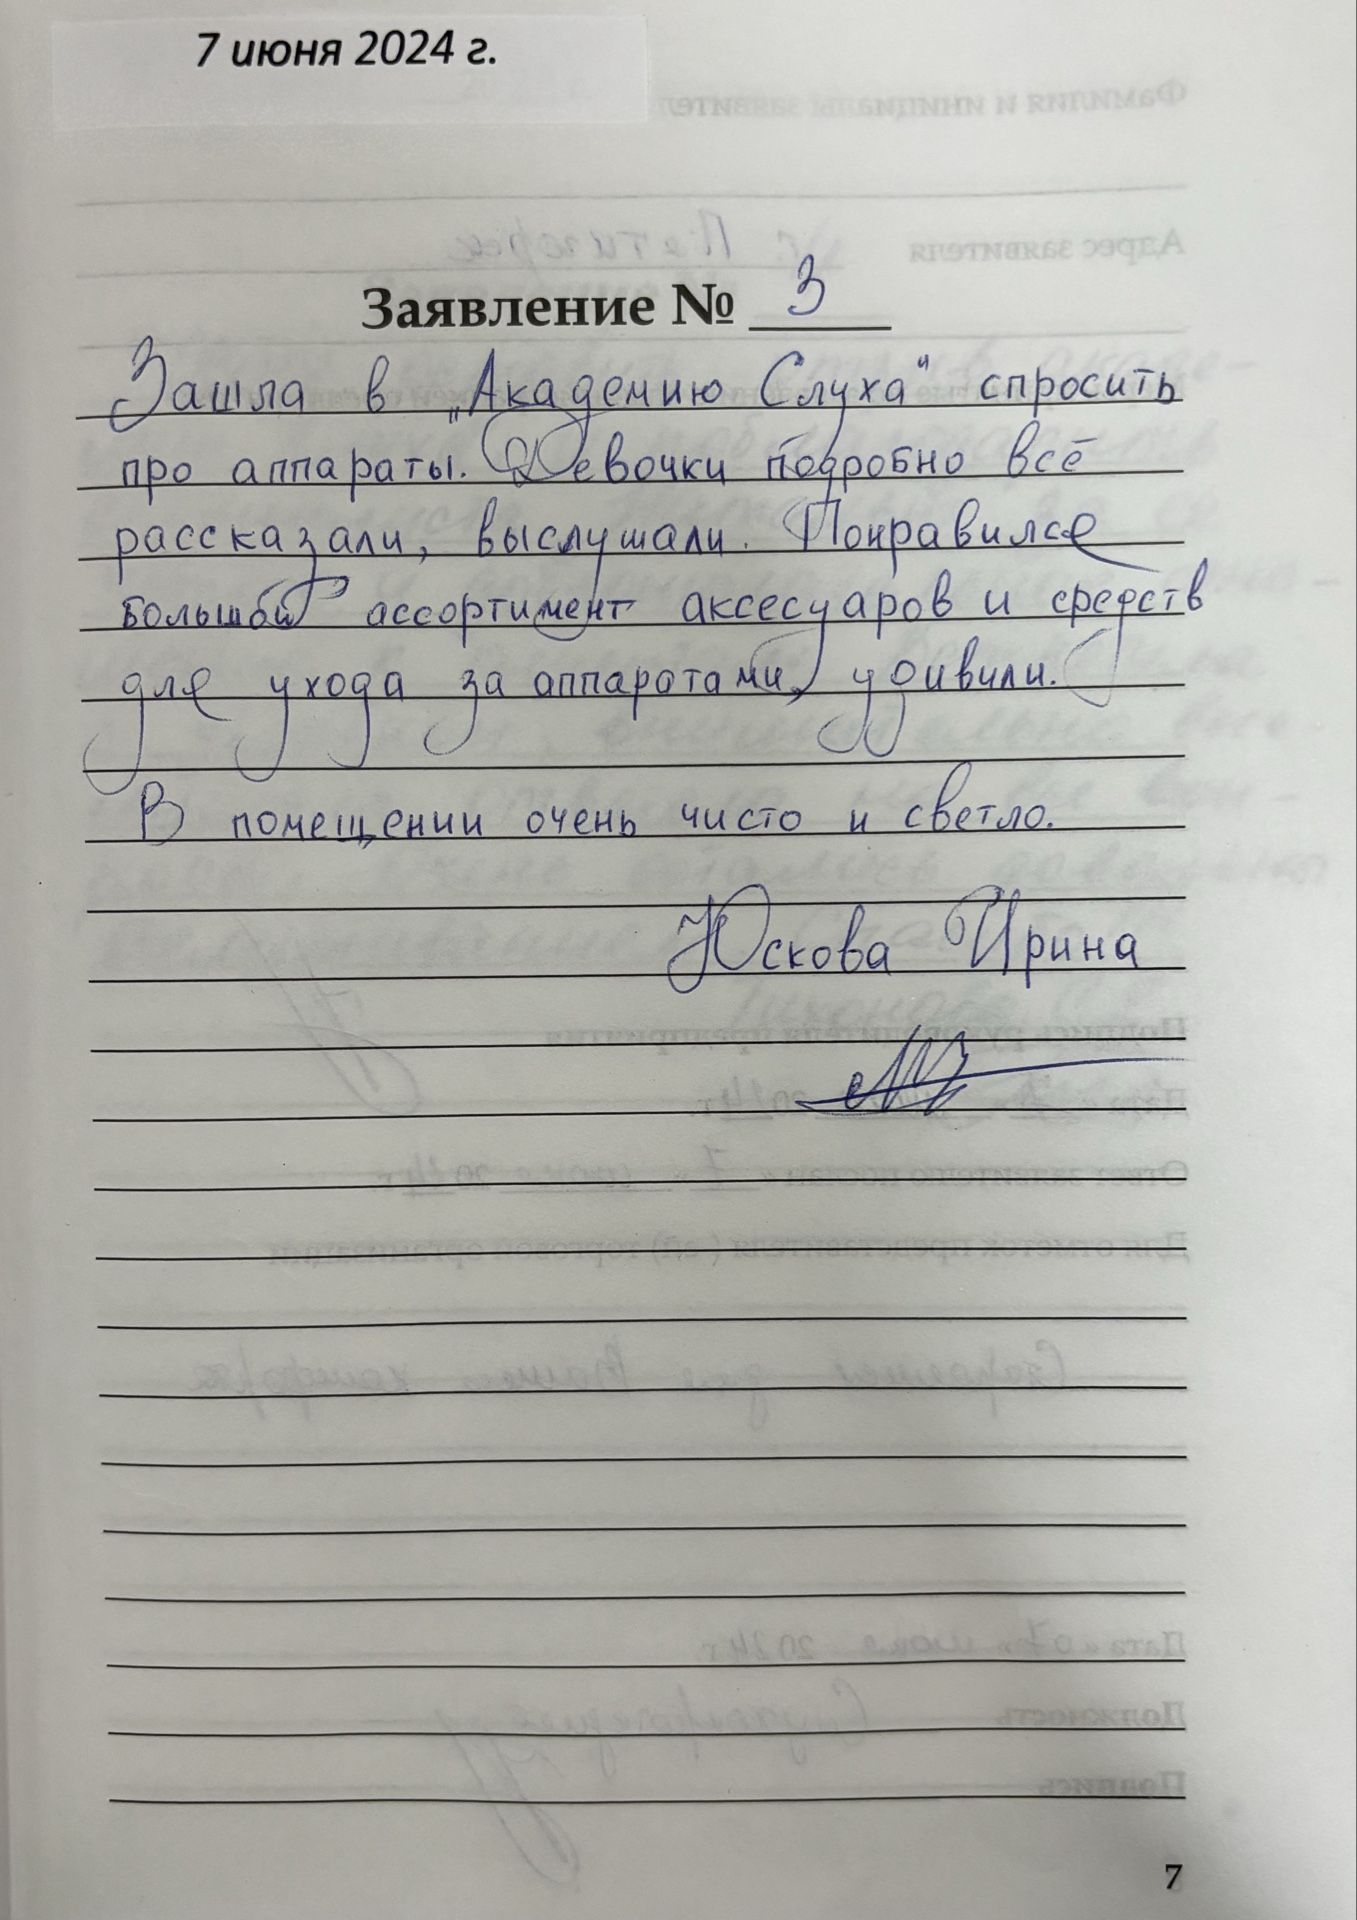 7 июня 2024 г.
Заявление № 3
Зашла в „Академию Слуха" спросить
про аппараты. Девочки подробно всё
рассказали, выслушали. Понравился
большой ассортимент аксесуаров и средств
для ухода за аппаратами, удивили.
В помещении очень чисто и светло.
Юскова Ирина
7